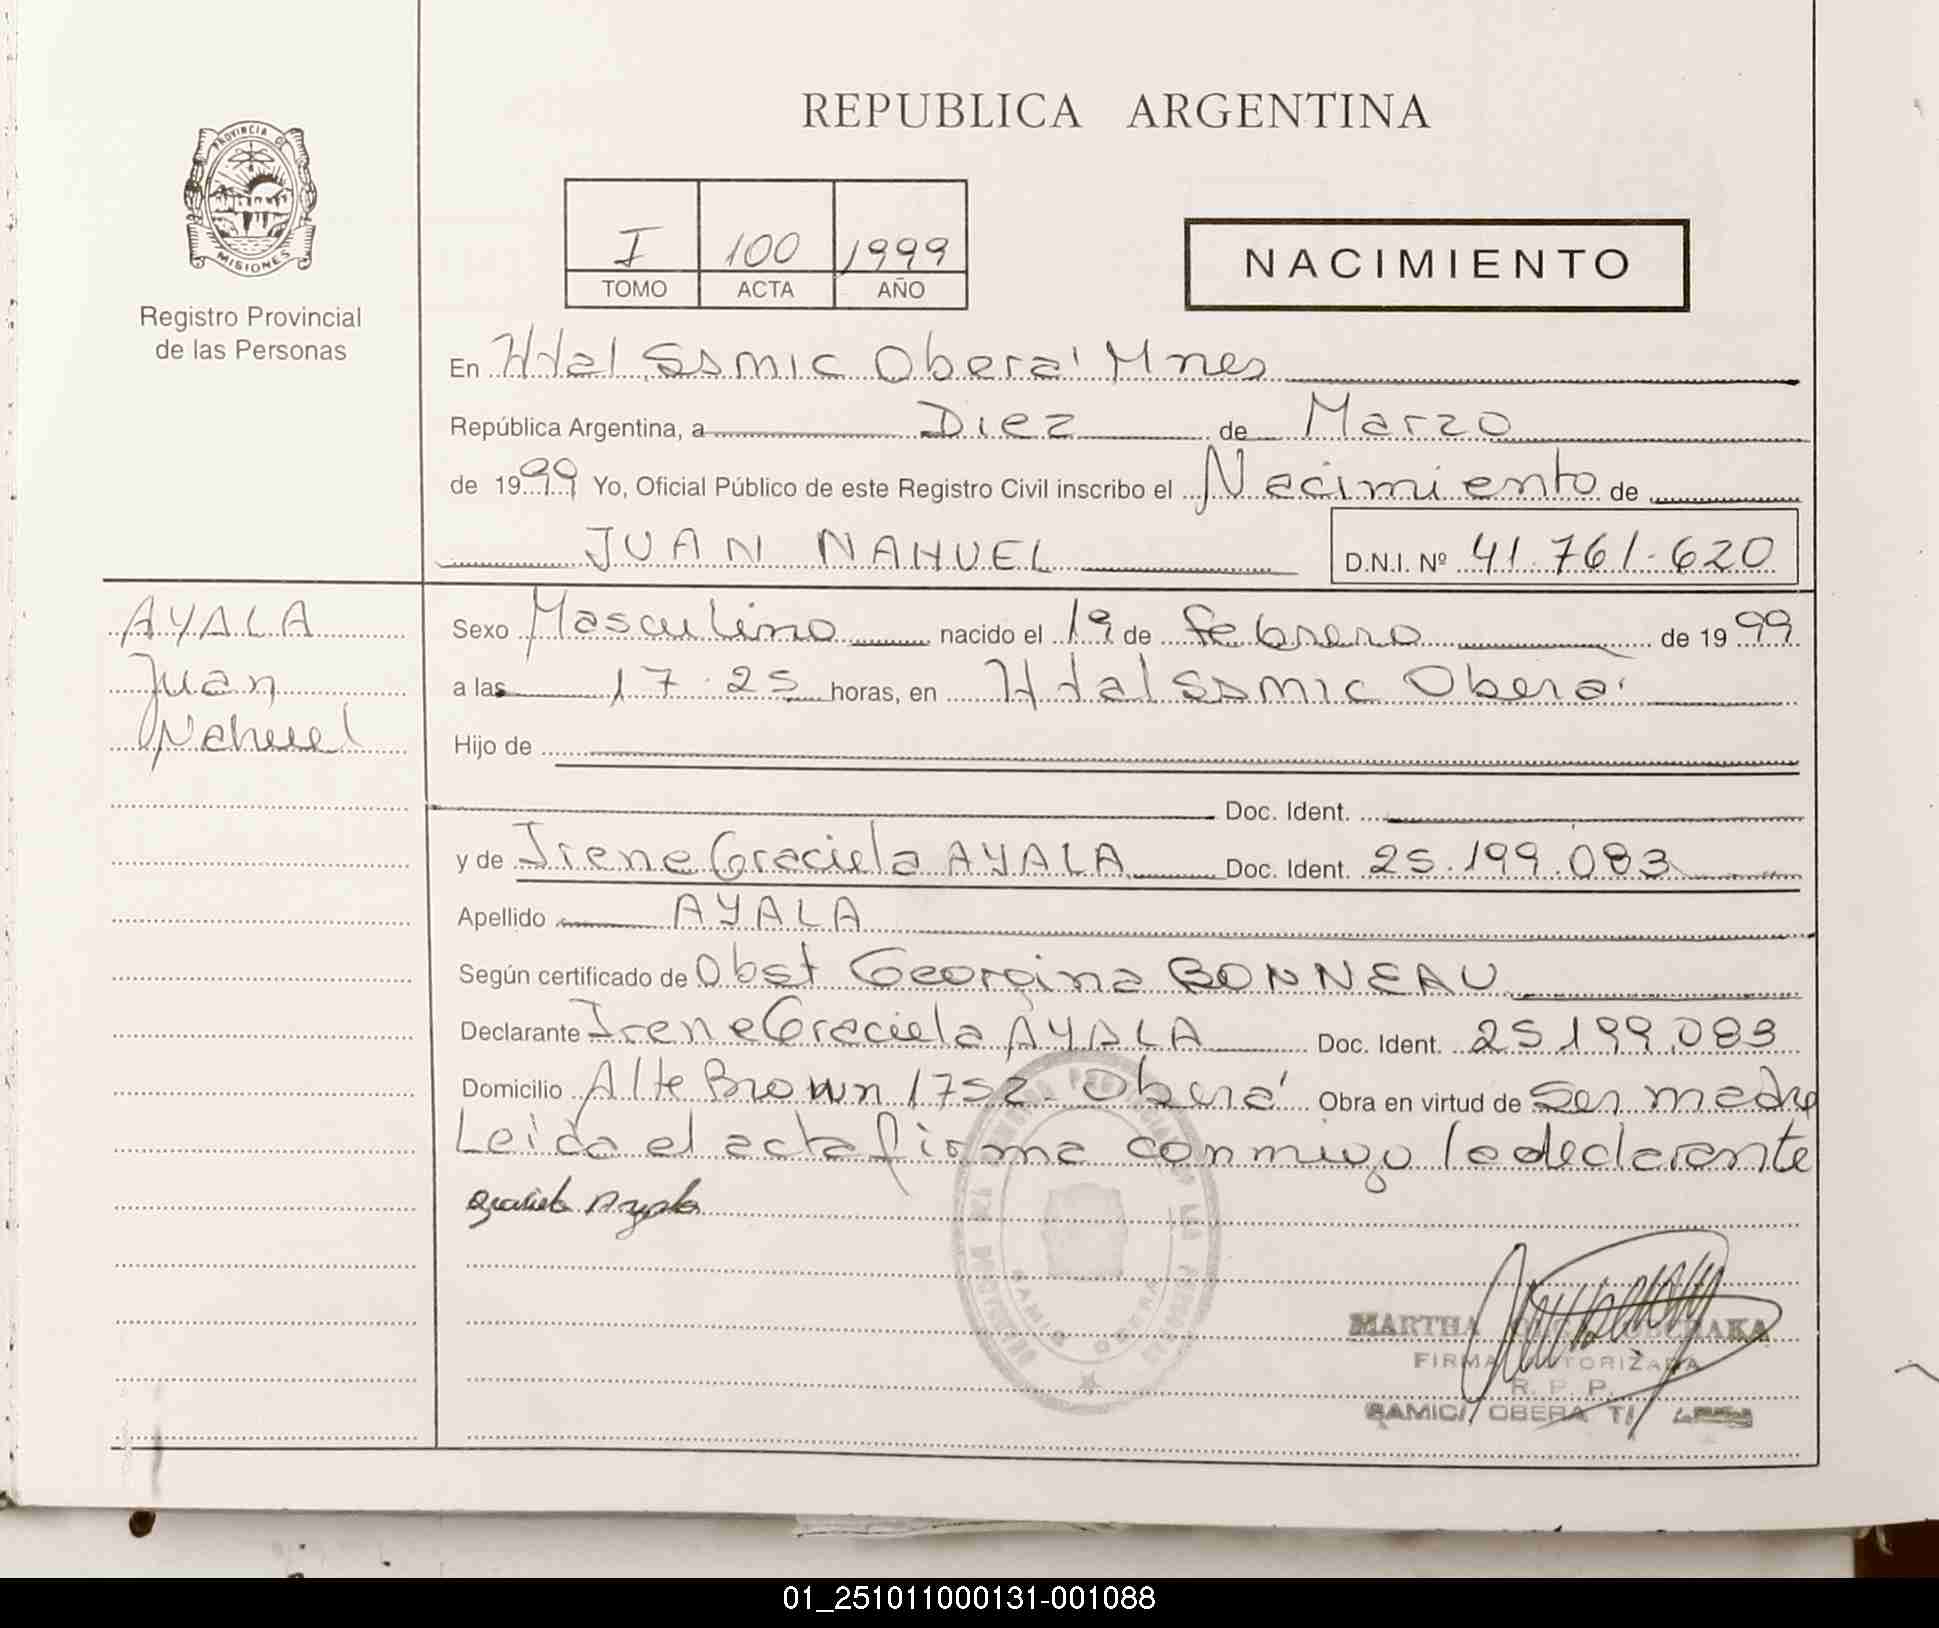 REPUBLICA ARGENTINA
PROVINCIA DE
MISIONES
Registro Provincial
de las Personas
I 100 1999
TOMO ACTA AÑO
NACIMIENTO
En Htal Ssmic Oberá Mnes
República Argentina, a Diez de Marzo
de 1999 Yo, Oficial Público de este Registro Civil inscribo el Nacimiento de
JUAN NAHUEL D.N.I. Nº 41.761.620
AYALA
Juan
Nahuel
Sexo Masculino nacido el 19 de febrero de 1999
a las 17.25 horas, en Htal Ssmic Oberá
Hijo de
Doc. Ident.
y de Irene Graciela AYALA Doc. Ident. 25.199.083
Apellido AYALA
Según certificado de Obst Georgina BONNEAU
Declarante Irene Graciela AYALA Doc. Ident. 25.199.083
Domicilio Alte Brown 1752 - Oberá Obra en virtud de Ser madre
Leida el acta firma conmigo la declarante
Graciela Ayala
MARTHA
FIRMA AUTORIZADA
R. P. P.
SAMIC OBERA
01_251011000131-001088